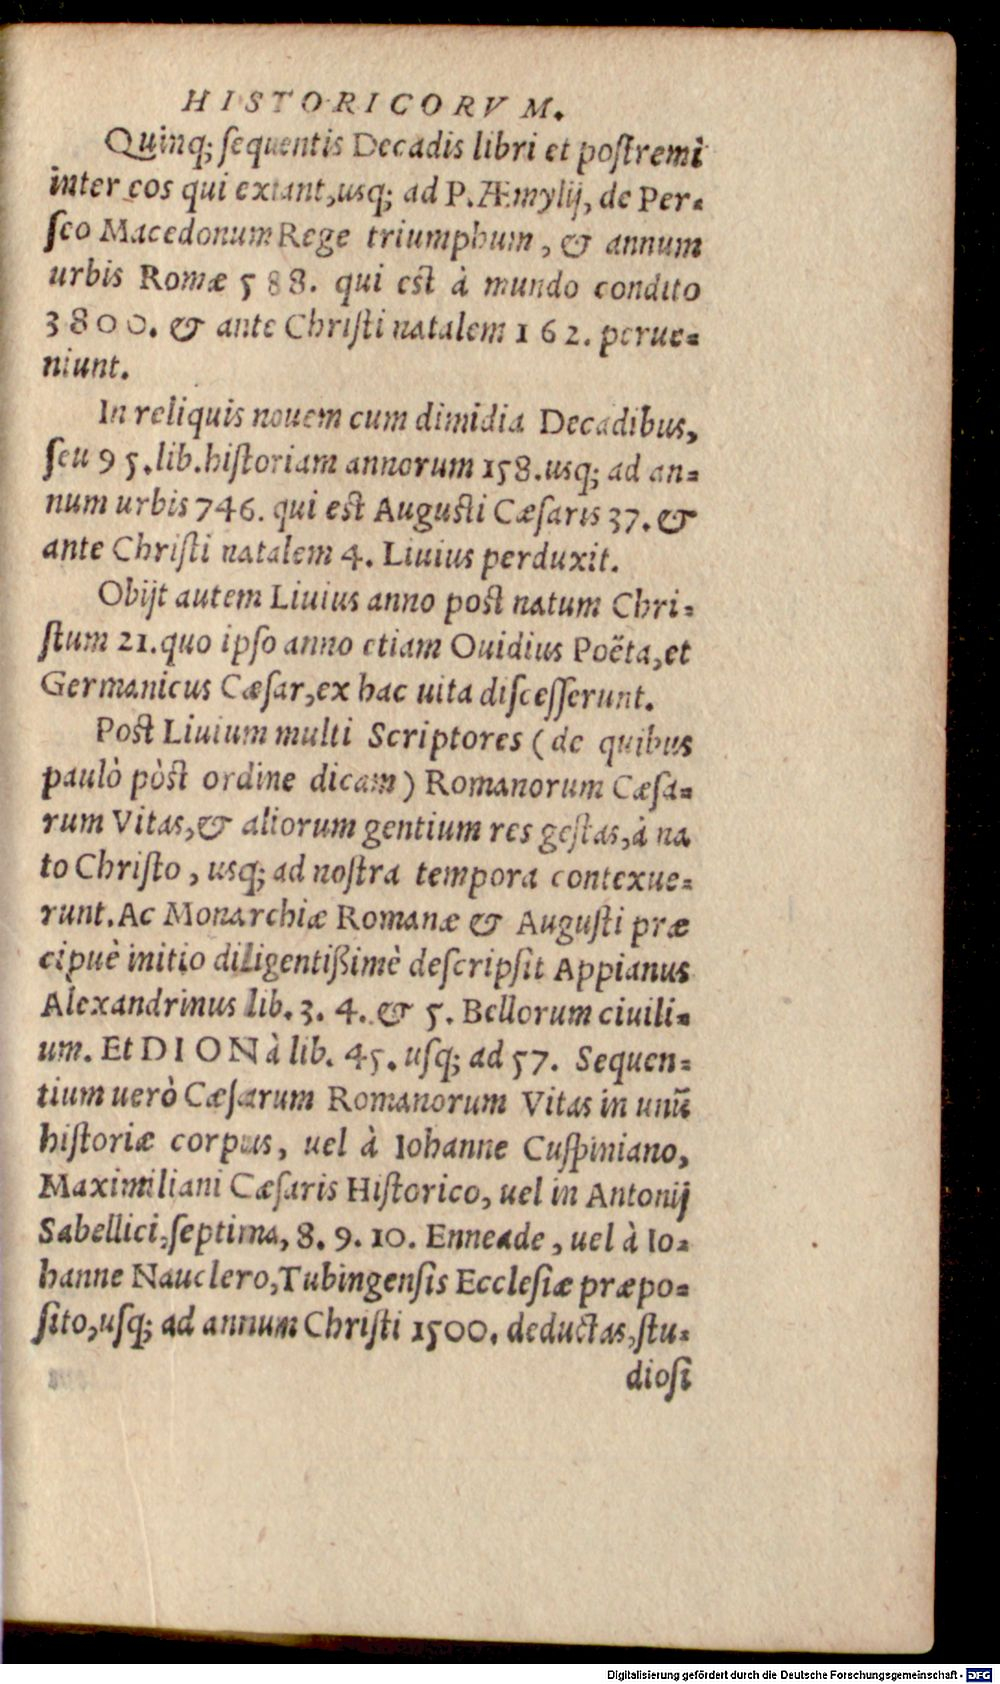 HISTORICORVM.
Quinq; ſequentis Decadis libri et poſtremi
inter eos qui extant, usq; ad P. Æmylij, de Per-
ſeo Macedonum Rege triumphum, & annum
urbis Romæ 588. qui eſt à mundo condito
3800. & ante Chriſti natalem 162. perue-
niunt.
In reliquis nouem cum dimidia Decadibus,
ſeu 95. lib. hiſtoriam annorum 158. usq; ad an-
num urbis 746. qui eſt Auguſti Cæſaris 37. &
ante Chriſti natalem 4. Liuius perduxit.
Obijt autem Liuius anno poſt natum Chri-
ſtum 21. quo ipſo anno etiam Ouidius Poëta, et
Germanicus Cæſar, ex hac uita diſceſſerunt.
Poſt Liuium multi Scriptores (de quibus
paulò pòſt ordine dicam) Romanorum Cæſa-
rum Vitas, & aliorum gentium res geſtas, à na
to Chriſto, usq; ad noſtra tempora contexue-
runt. Ac Monarchiæ Romanæ & Auguſti præ
cipuè initio diligentißimè deſcripſit Appianus
Alexandrinus lib. 3. 4. & 5. Bellorum ciuili-
um. Et DION à lib. 45. uſq; ad 57. Sequen-
tium uerò Cæſarum Romanorum Vitas in unũ
hiſtoriæ corpus, uel à Iohanne Cuſpiniano,
Maximiliani Cæſaris Hiſtorico, uel in Antonij
Sabellici, ſeptima, 8. 9. 10. Enneade, uel à Io-
hanne Nauclero, Tubingenſis Eccleſiæ præpo-
ſito, uſq; ad annum Chriſti 1500. deductas, ſtu-
dioſi
Digitalisierung gefördert durch die Deutsche Forschungsgemeinschaft - DFG